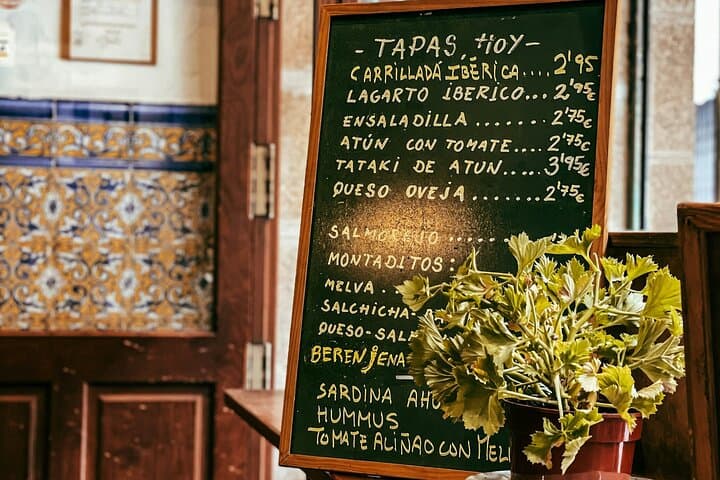 - TAPAS, HOY -
CARRILLADA IBÉRICA.... 2'95
LAGARTO IBERICO... 2'95€
ENSALADILLA ...... 2'75€
ATÚN CON TOMATE.... 2'75€
TATAKI DE ATUN..... 3'95€
QUESO OVEJA ...... 2'75€
SALMOREJO ......
MONTADITOS:
MELVA .
SALCHICHA-
QUESO-
BERENJENA
SARDINA
HUMMUS
TOMATE ALIÑAO CON